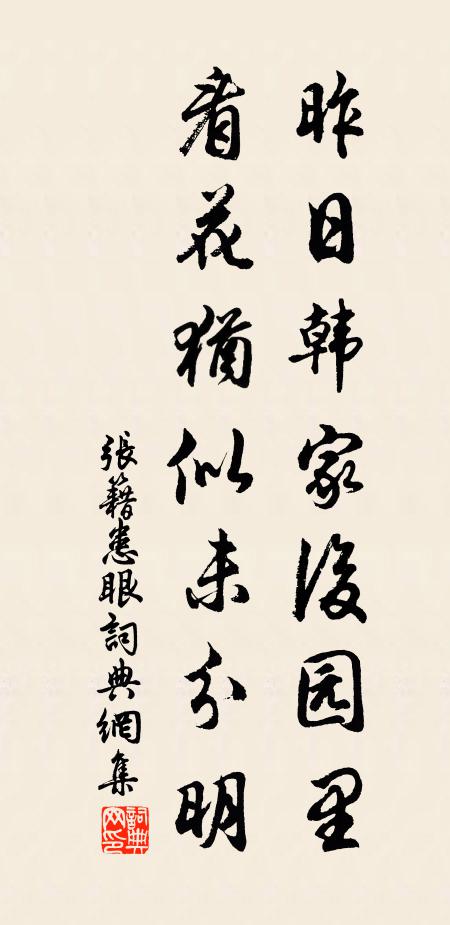 昨日韩家後园里
看花猶似未分明
張籍患眼詞典網集
詞典網印